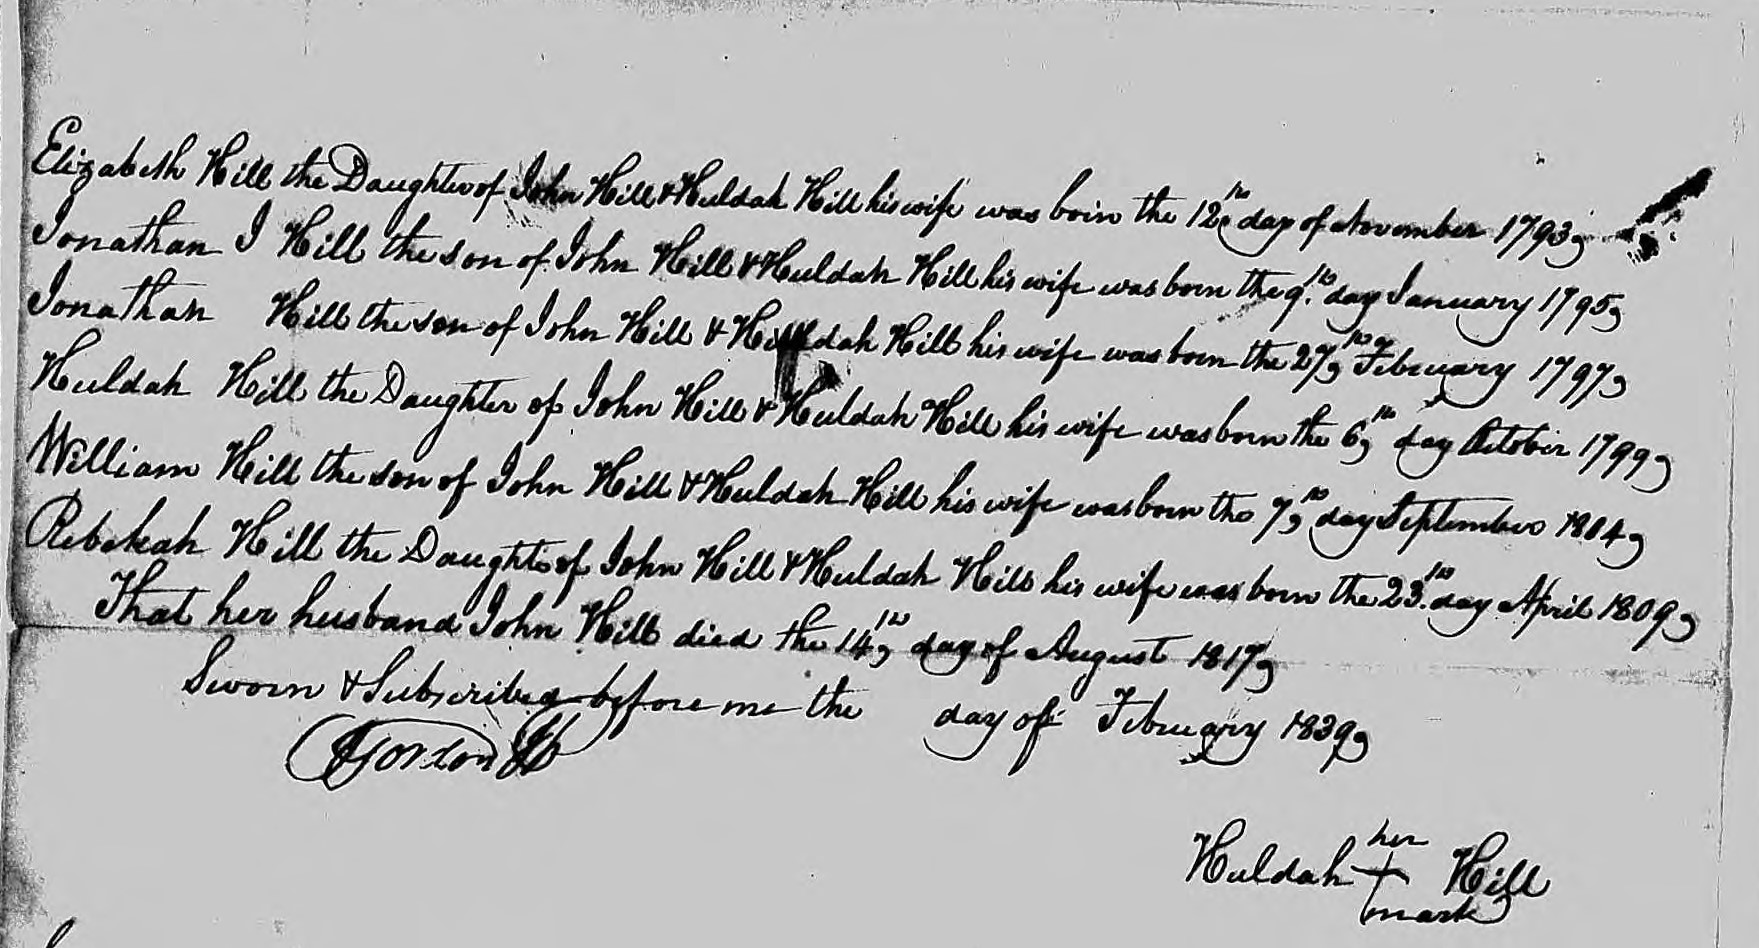 Elizabeth Hill the Daughter of John Hill & Huldah Hill his wife was born the 12th day of November 1793,
Jonathan I Hill the son of John Hill & Huldah Hill his wife was born the 9th day January 1795,
Jonathan Hill the son of John Hill & Huldah Hill his wife was born the 27th February 1797,
Huldah Hill the Daughter of John Hill & Huldah Hill his wife was born the 6th day October 1799,
William Hill the son of John Hill & Huldah Hill his wife was born the 7th day September 1804,
Rebekah Hill the Daughter of John Hill & Huldah Hill his wife was born the 23th day April 1809,
That her husband John Hill died the 14th day of August 1817,
Sworn & Subscribed before me the day of February 1839,
Gordon JP
her
Huldah + Hill
mark